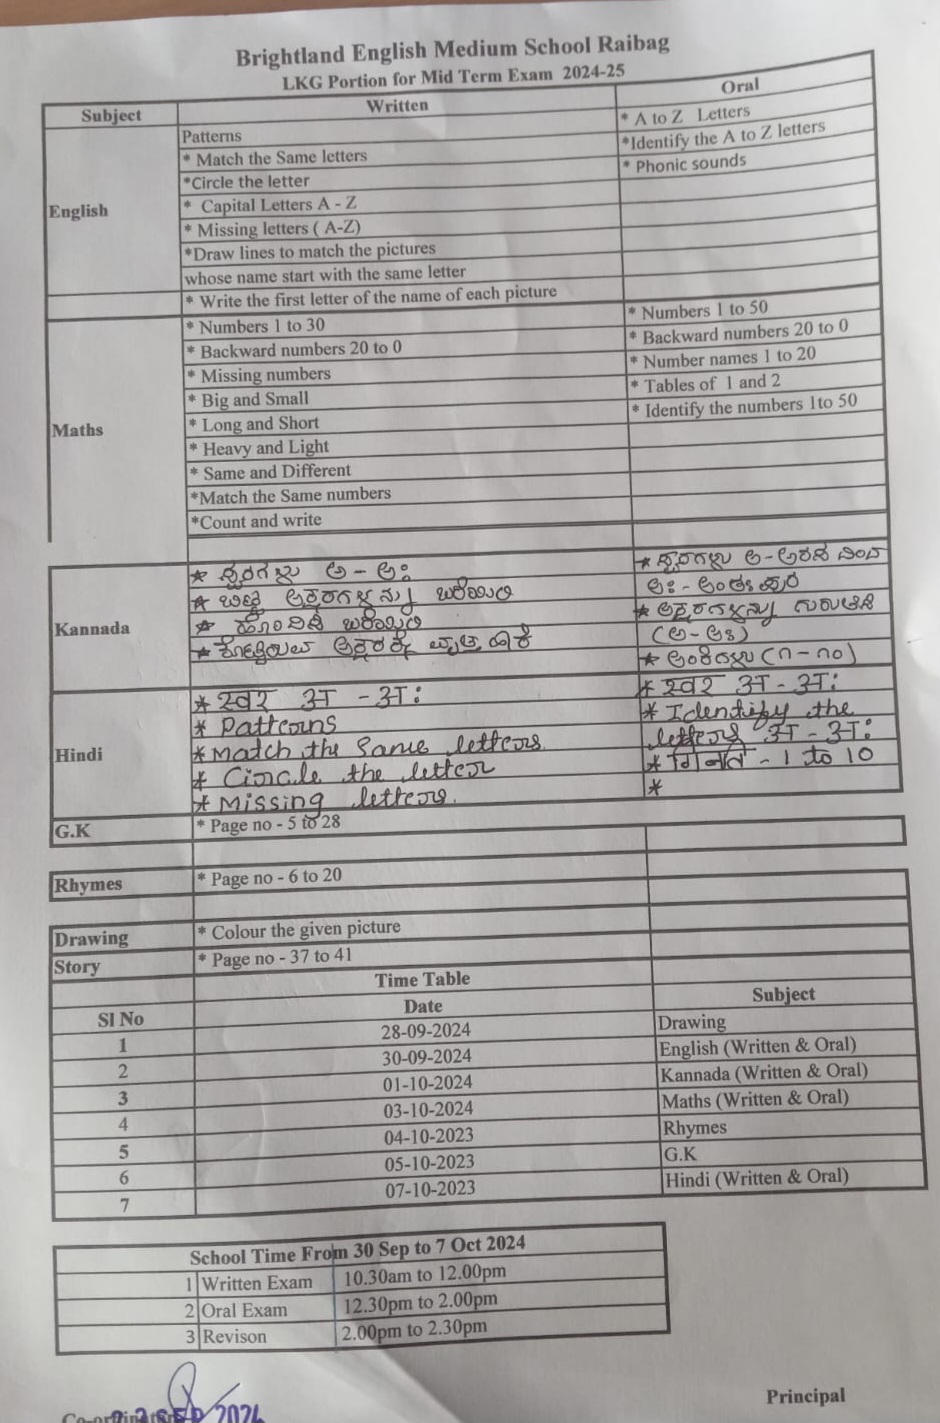 Brightland English Medium School Raibag
LKG Portion for Mid Term Exam 2024-25
Subject Written Oral
English
Patterns
* Match the Same letters
*Circle the letter
* Capital Letters A - Z
* Missing letters ( A-Z)
*Draw lines to match the pictures
whose name start with the same letter
* Write the first letter of the name of each picture
* A to Z Letters
*Identify the A to Z letters
* Phonic sounds
Maths
* Numbers 1 to 30
* Backward numbers 20 to 0
* Missing numbers
* Big and Small
* Long and Short
* Heavy and Light
* Same and Different
*Match the Same numbers
*Count and write
* Numbers 1 to 50
* Backward numbers 20 to 0
* Number names 1 to 20
* Tables of 1 and 2
* Identify the numbers 1to 50
Kannada
* ಸ್ವರಗಳು ಅ - ಅಃ
* ಬಿಟ್ಟ ಅಕ್ಷರಗಳನ್ನು ಬರೆಯಿರಿ
* ಹೊಂದಿಸಿ ಬರೆಯಿರಿ
* ಅಕ್ಷರಕ್ಕೆ
* ಸ್ವರಗಳು ಅ-ಅರಸ ದಿಂದ
ಅಃ-
* ಅಕ್ಷರಗಳನ್ನು ಗುರುತಿಸಿ
(ಅ-ಅಃ)
* ಅಂಕಿಗಳು (೧-೧೦)
Hindi
* स्वर अ - अः
* Patterns
* Match the same letters
* Circle the letter
* Missing letters.
* स्वर अ - अः
* Identify the
letters अ - अः
* गिनती - 1 to 10
*
G.K
* Page no - 5 to 28
Rhymes
* Page no - 6 to 20
Drawing
* Colour the given picture
Story
* Page no - 37 to 41
Time Table
Sl No Date Subject
1 28-09-2024 Drawing
2 30-09-2024 English (Written & Oral)
3 01-10-2024 Kannada (Written & Oral)
4 03-10-2024 Maths (Written & Oral)
5 04-10-2023 Rhymes
6 05-10-2023 G.K
7 07-10-2023 Hindi (Written & Oral)
School Time From 30 Sep to 7 Oct 2024
1 Written Exam 10.30am to 12.00pm
2 Oral Exam 12.30pm to 2.00pm
3 Revison 2.00pm to 2.30pm
Principal
SEP 2024